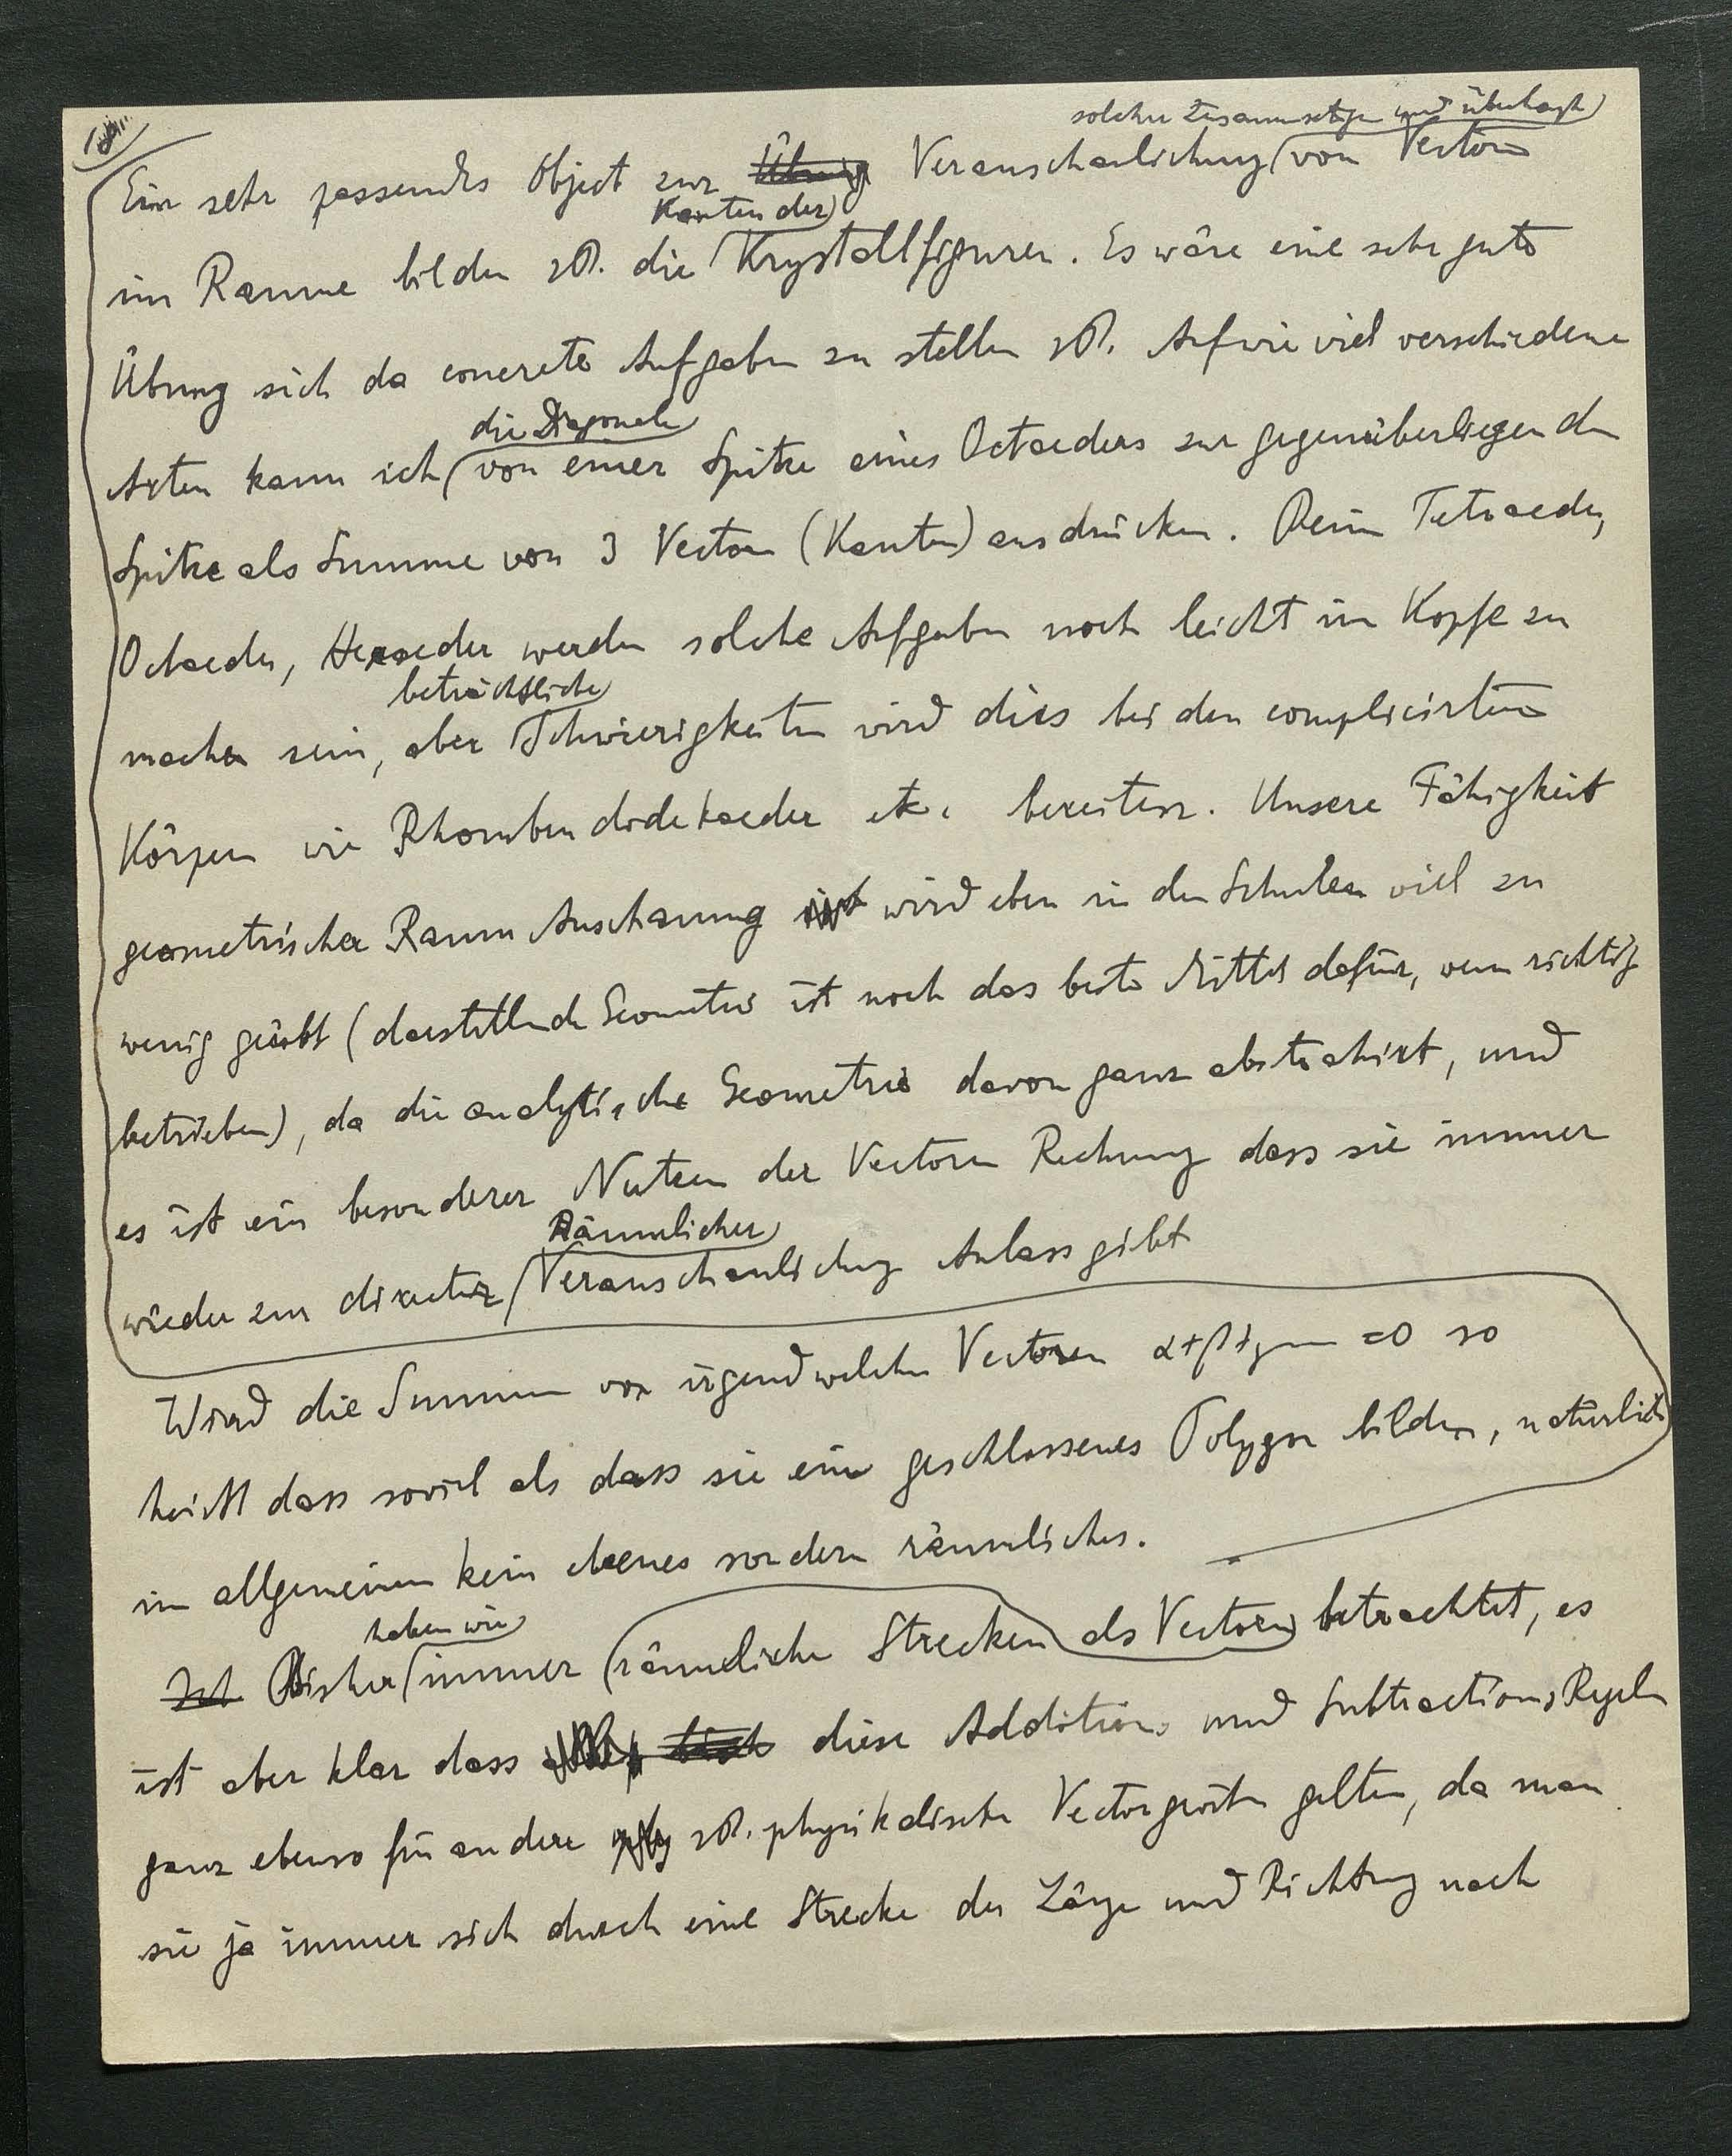 18
solcher Zusammensetzgn und überhaupt
Ein sehr passendes Object zur Übung Veranschaulichung von Vectoren
Kanten der
im Raume bilden zB. die Krystallfiguren. Es wäre eine sehr gute
Übung sich da concrete Aufgaben zu stellen zB. Auf wie viel verschiedene
die Diagonale
Arten kann ich von einer Spitze eines Octaeders zur gegenüberliegenden
Spitze als Summe von 3 Vectoren (Kanten) ausdrücken. Beim Tetraeder,
Octaeder, Hexaeder werden solche Aufgaben noch leicht im Kopfe zu
beträchtliche
machen sein, aber Schwierigkeiten wird dies bei den complicirteren
Körpern wie Rhombendodekaeder etc. bereiten. Unsere Fähigkeit
geometrischer Raum Anschauung ist wird eben in den Schulen viel zu
wenig geübt (darstellende Geometrie ist noch das beste Mittel dafür, wenn richtig
betrieben), da die analytische Geometrie davon ganz abstrahirt, und
es ist ein besonderer Nutzen der Vectoren Rechnung dass sie immer
Räumlicher
wieder zur directer Veranschaulichung Anlass gibt
Wird die Summe von irgendwelchen Vectoren α+β+γ =0 so
heisst dass soviel als dass sie ein geschlossenes Polygon bilden, natürlich
im allgemeinen kein ebenes sondern räumliches.
haben wir
Ist Bisher immer räumliche Strecken als Vectoren betrachtet, es
ist aber klar dass diese Additions und Subtractions Regeln
ganz ebenso für andere zB. physikalische Vectorgrössen gelten, da man
sie ja immer sich durch eine Strecke der Länge und Richtung nach